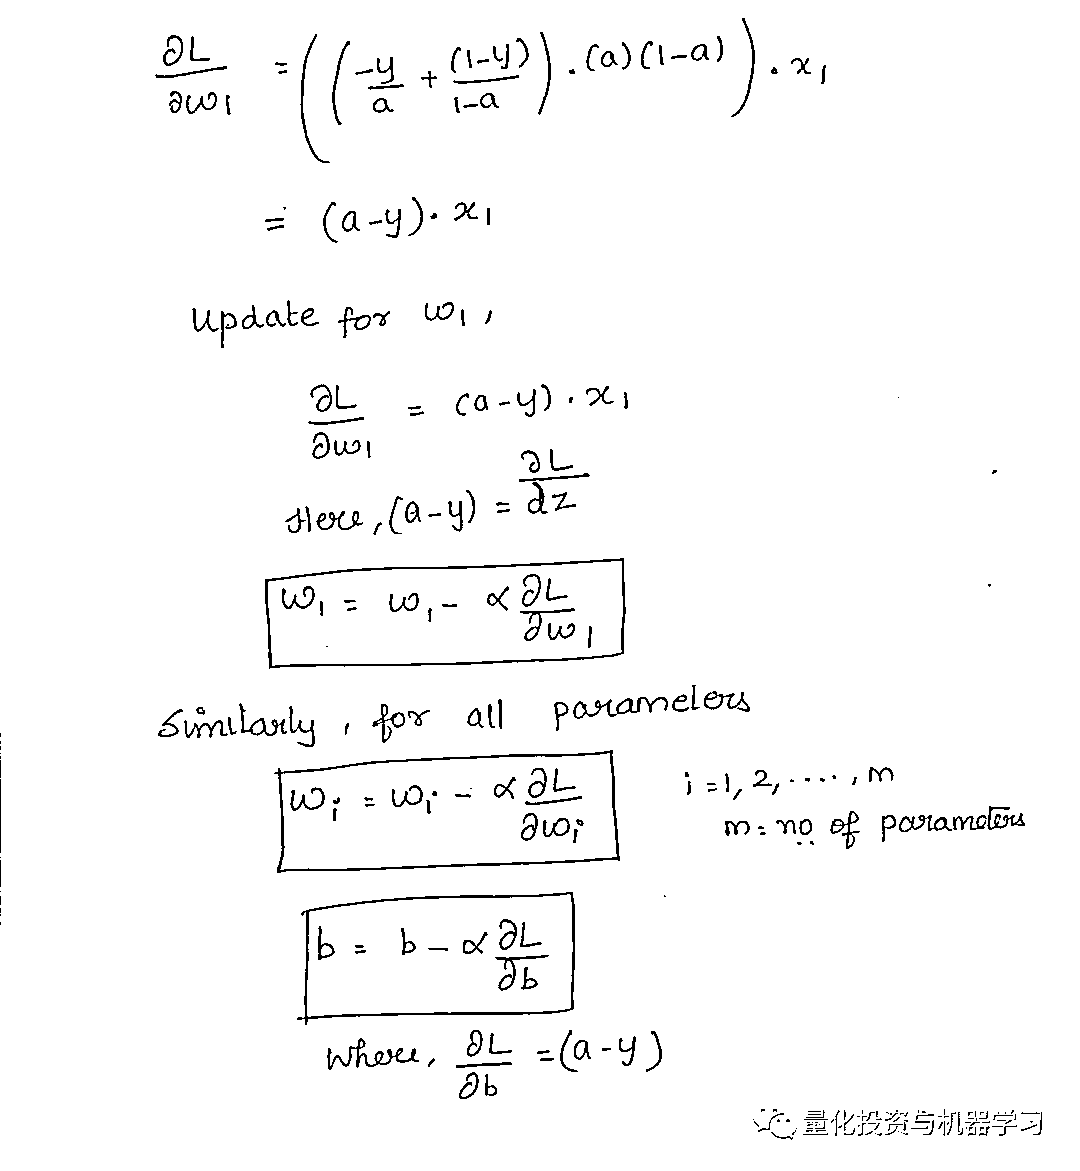 ∂L/∂w1 = ((-y/a + (1-y)/1-a) . (a)(1-a)) . x1
= (a-y) . x1
Update for w1,
∂L/∂w1 = (a-y) . x1
Here, (a-y) = ∂L/dz
w1 = w1 - α ∂L/∂w1
Similarly, for all parameters
wi = wi - α ∂L/∂wi
i = 1, 2, ...., m
m = no of parameters
b = b - α ∂L/∂b
Where, ∂L/∂b = (a-y)
量化投资与机器学习